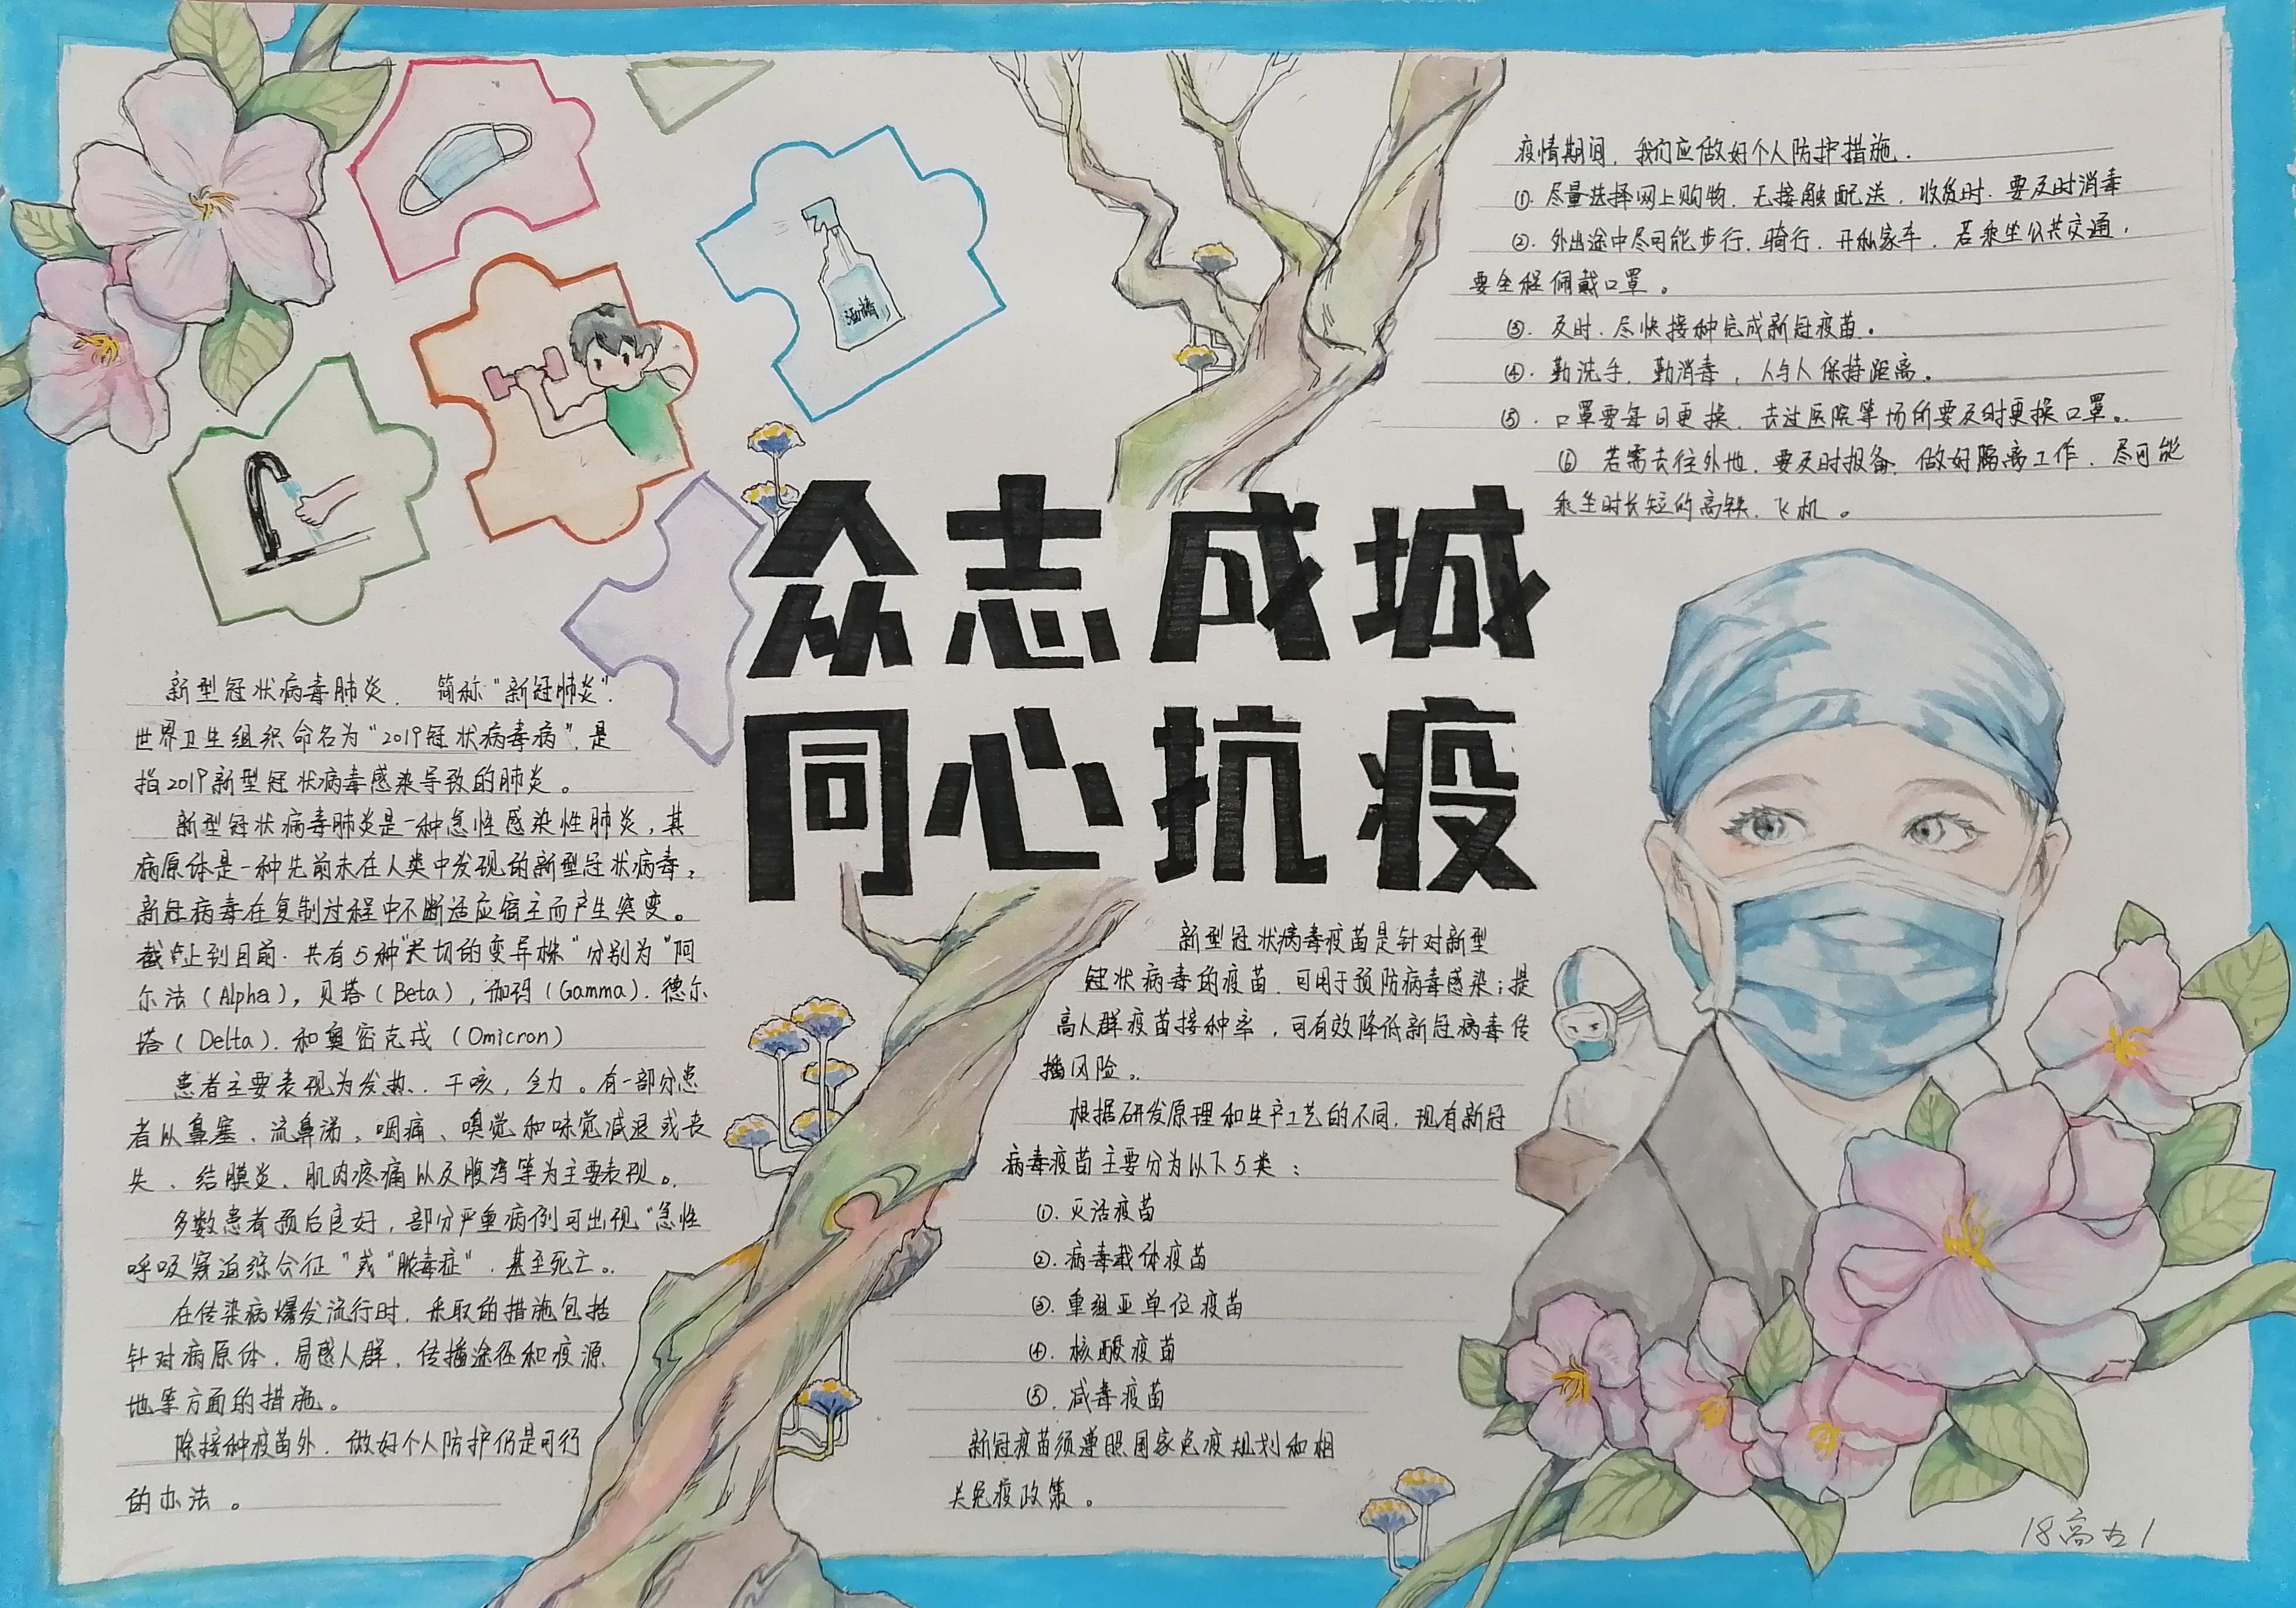 众志成城
同心抗疫
酒精
新型冠状病毒肺炎. 简称"新冠肺炎".
世界卫生组织命名为"2019冠状病毒病". 是
指2019新型冠状病毒感染导致的肺炎。
新型冠状病毒肺炎是一种急性感染性肺炎,其
病原体是一种先前未在人类中发现的新型冠状病毒。
新冠病毒在复制过程中不断适应宿主而产生突变。
截止到目前. 共有5种"关切的变异株"分别为"阿
尔法(Alpha), 贝塔(Beta), 伽玛(Gamma). 德尔
塔(Delta). 和奥密克戎(Omicron)
患者主要表现为发热、干咳,乏力。有一部分患
者以鼻塞、流鼻涕、咽痛、嗅觉和味觉减退或丧
失、结膜炎、肌肉疼痛以及腹泻等为主要表现。
多数患者预后良好,部分严重病例可出现"急性
呼吸窘迫综合征"或"脓毒症". 甚至死亡。
在传染病爆发流行时. 采取的措施包括
针对病原体. 易感人群. 传播途径和疫源
地等方面的措施。
除接种疫苗外. 做好个人防护仍是可行
的办法。
疫情期间. 我们应做好个人防护措施.
①. 尽量选择网上购物. 无接触配送. 收货时. 要及时消毒
②. 外出途中尽可能步行. 骑行. 开私家车. 若乘坐公共交通,
要全程佩戴口罩。
③. 及时. 尽快接种完成新冠疫苗。
④. 勤洗手. 勤消毒, 人与人保持距离。
⑤. 口罩要每日更换. 去过医院等场所要及时更换口罩。
⑥ 若需去往外地. 要及时报备. 做好隔离工作. 尽可能
乘坐时长短的高铁. 飞机。
新型冠状病毒疫苗是针对新型
冠状病毒的疫苗. 可用于预防病毒感染;提
高人群疫苗接种率,可有效降低新冠病毒传
播风险。
根据研发原理和生产工艺的不同. 现有新冠
病毒疫苗主要分为以下5类:
①. 灭活疫苗
②. 病毒载体疫苗
③. 重组亚单位疫苗
④. 核酸疫苗
⑤. 减毒疫苗
新冠疫苗须遵照国家免疫规划和相
关免疫政策。
18高古1